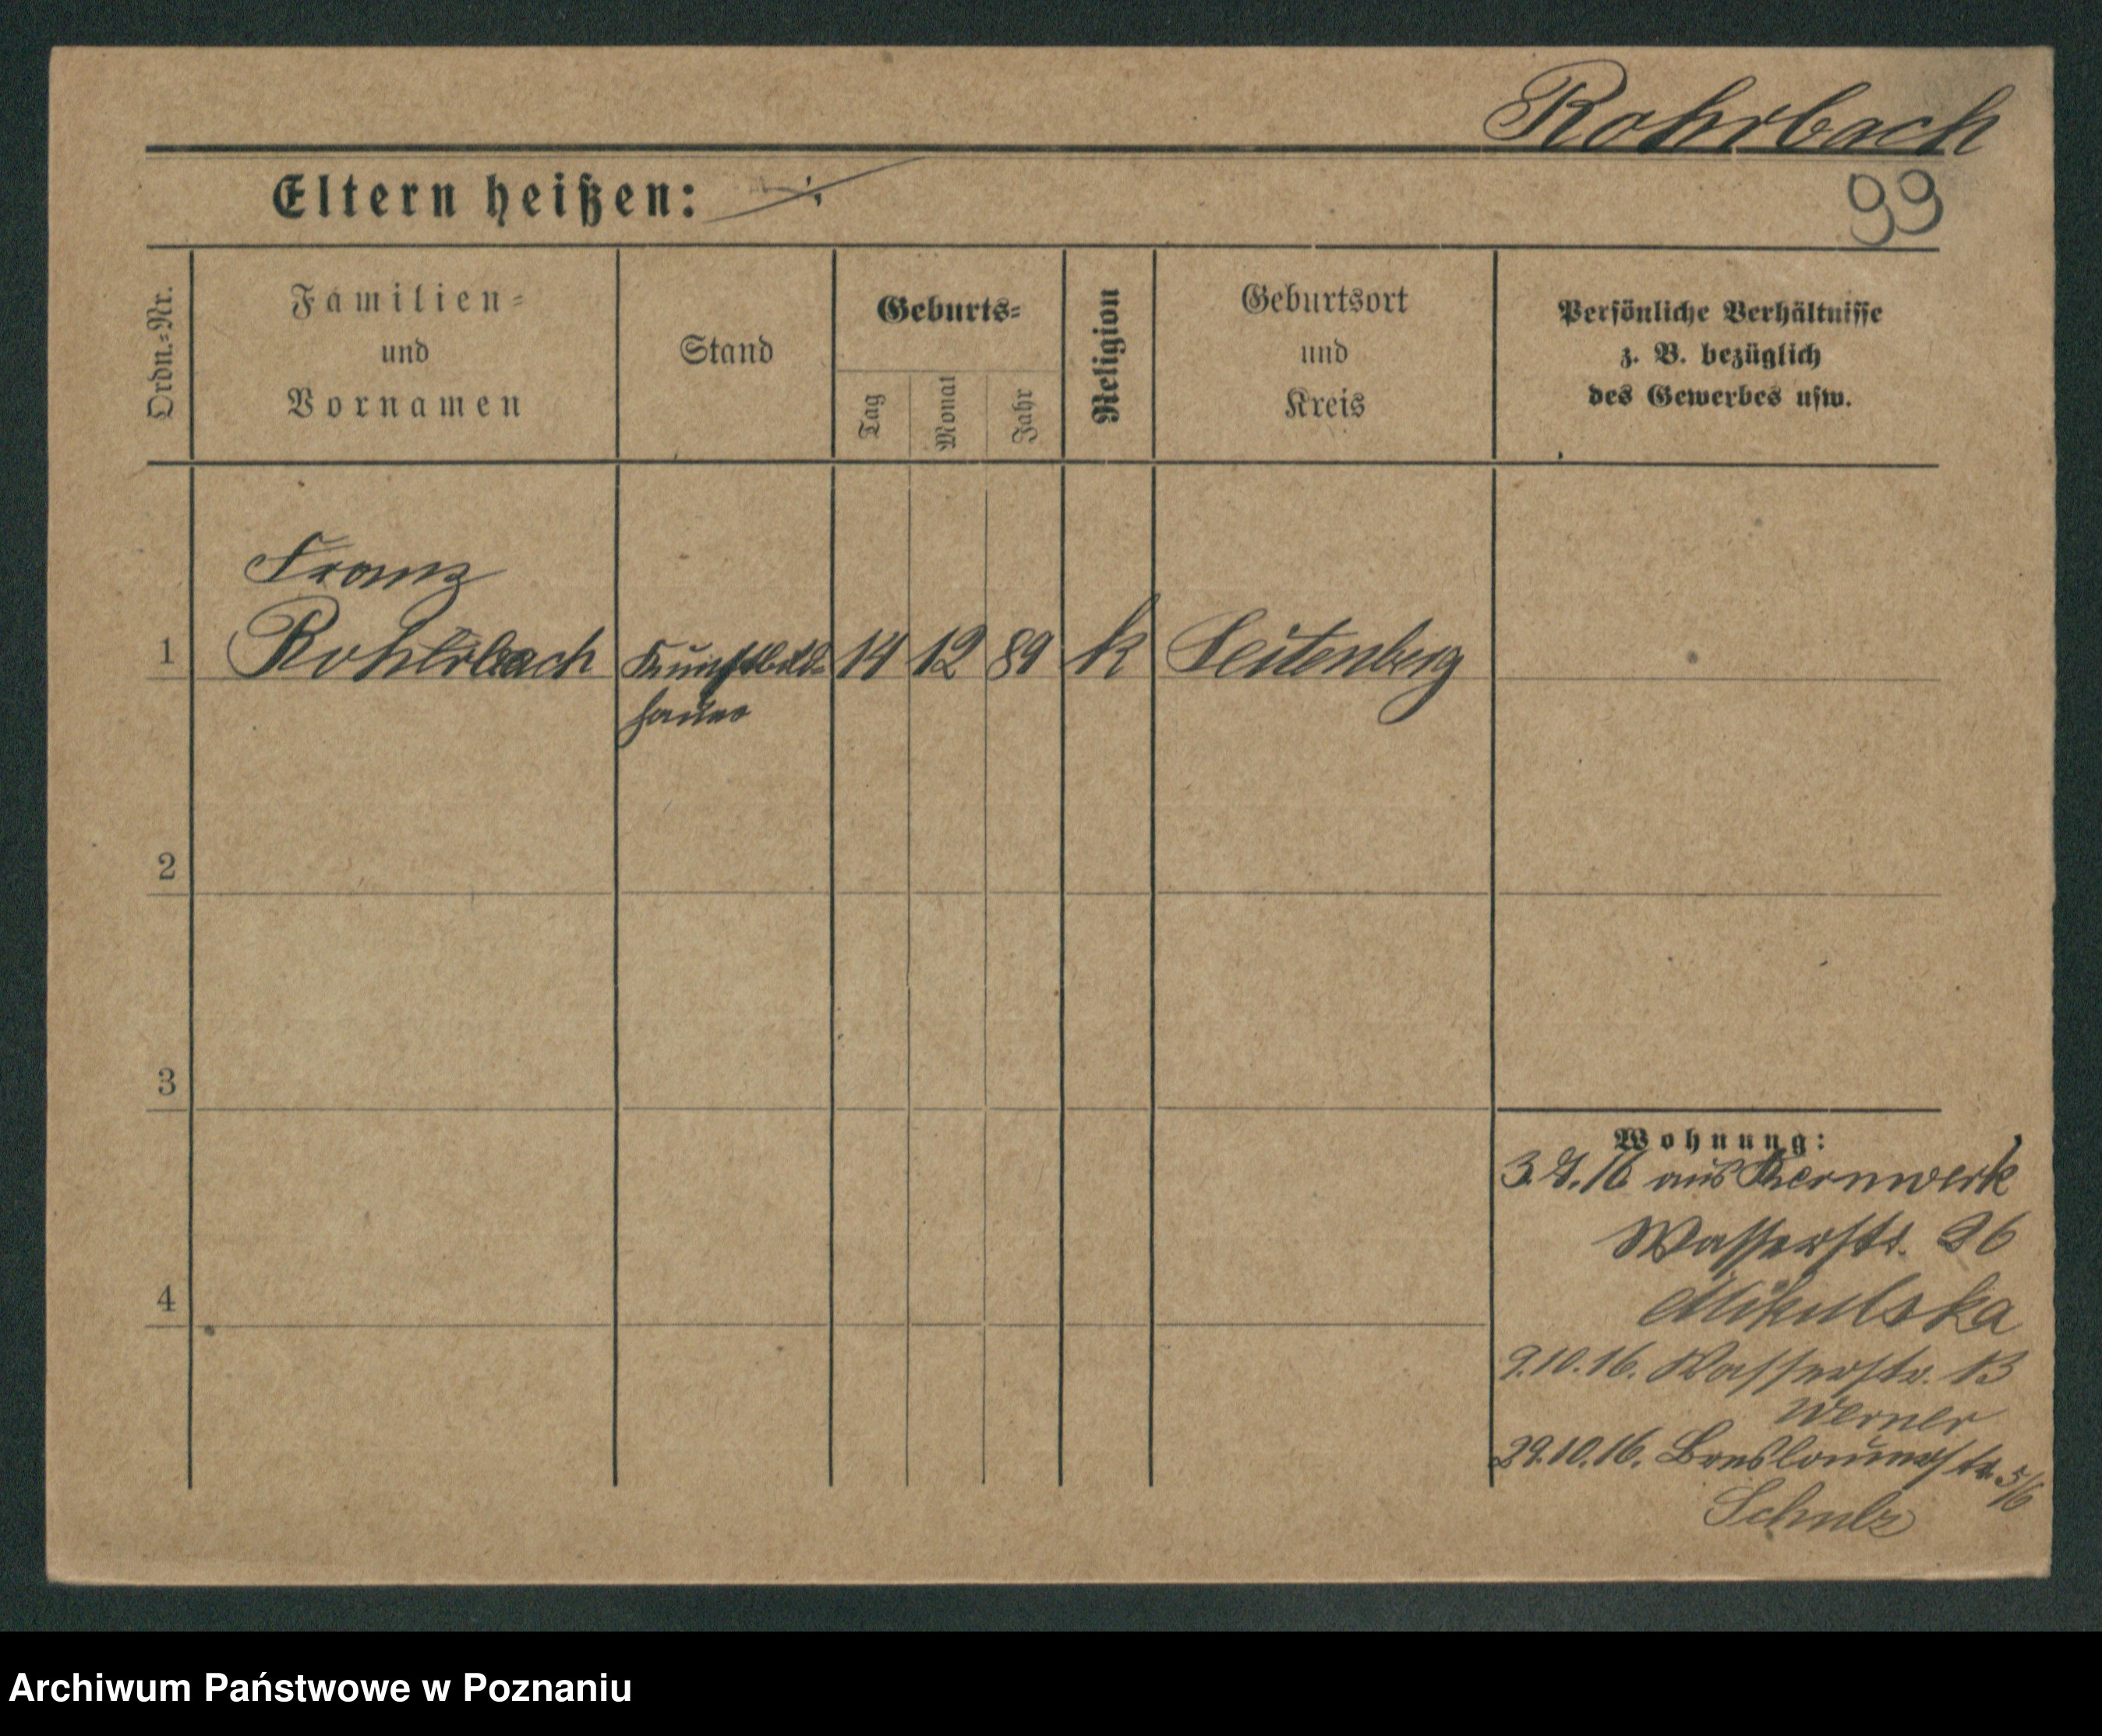 Rohrbach
99
Eltern heißen: ./.
Ordn.=Nr.
Familien=
und
Vornamen
Stand
Geburts=
Tag
Monat
Jahr
Religion
Geburtsort
und
Kreis
Persönliche Verhältnisse
z. B. bezüglich
des Gewerbes usw.
Franz
1 Rohrbach Kunstbild= 14 12 89 k Leitenberg
hauer
2
3
4
Wohnung:
16 aus Kernwerk
Wasserstr. 26
Mikulska
9.10.16. Wasserstr. 13
Werner
29.10.16. Breslauerstr. 5/6
Schulz
Archiwum Państwowe w Poznaniu